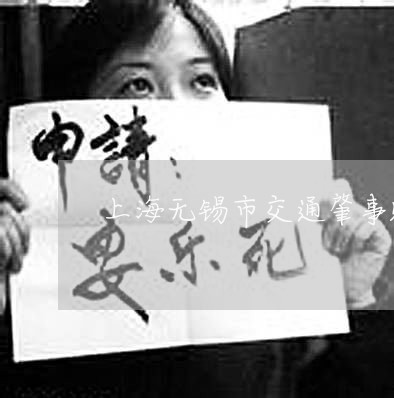 申請：
上海无锡市交通肇事
要乐死